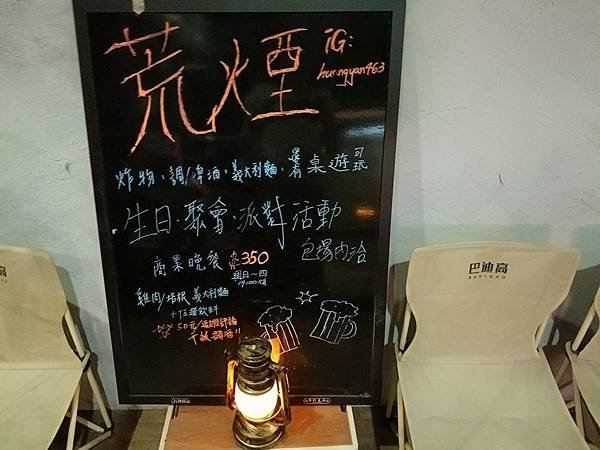 荒煙
iG:
huangyan463
炸物、調/啤酒、義大利麵、還有桌遊可玩
·生日·聚會·派對活動
包場內洽
商業晚餐 350
週日~四
雞肉/培根 義大利麵
+任選飲料
+50元/
巴迪高
BADIGAO